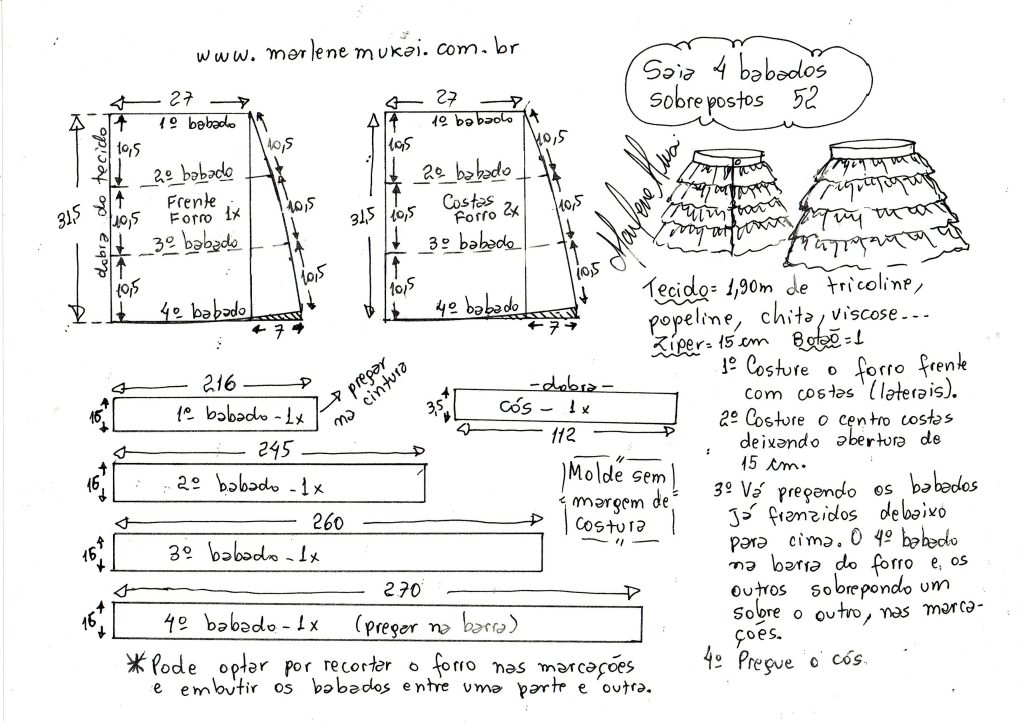 www.marlenemukai.com.br
Saia 4 babados
sobrepostos 52
27
1º babado
10,5
10,5
2º babado
dobra do tecido
31,5
Frente
Forro 1x
10,5
10,5
3º babado
10,5
10,5
4º babado
7
27
1º babado
10,5
10,5
2º babado
31,5
Costas
Forro 2x
10,5
10,5
3º babado
10,5
10,5
4º babado
7
Marlene Mukai
Tecido = 1,90m de tricoline,
popeline, chita, viscose...
Zíper = 15 cm Botão = 1
1º Costure o forro frente
com costas (laterais).
2º Costure o centro costas
deixando abertura de
15 cm.
3º Vá pregando os babados
já franzidos debaixo
para cima. O 4º babado
na barra do forro e, os
outros sobrepondo um
sobre o outro, nas marca-
ções.
4º Pregue o cós.
216
15
1º babado - 1x
pregar
na cintura
- dobra -
3,5
cós - 1x
112
245
15
2º babado - 1x
Molde sem
margem de
costura
260
15
3º babado - 1x
270
15
4º babado - 1x (pregar na barra)
* Pode optar por recortar o forro nas marcações
e embutir os babados entre uma parte e outra.